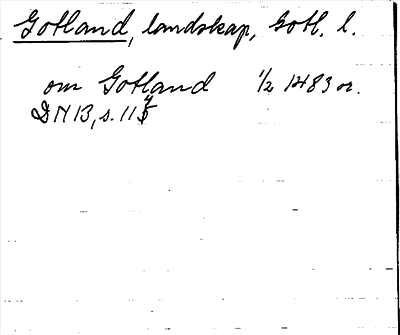 Gotland, landskap, Gotl. l.
om Gotland 1/2 1483 or.
DN 13, s. 114